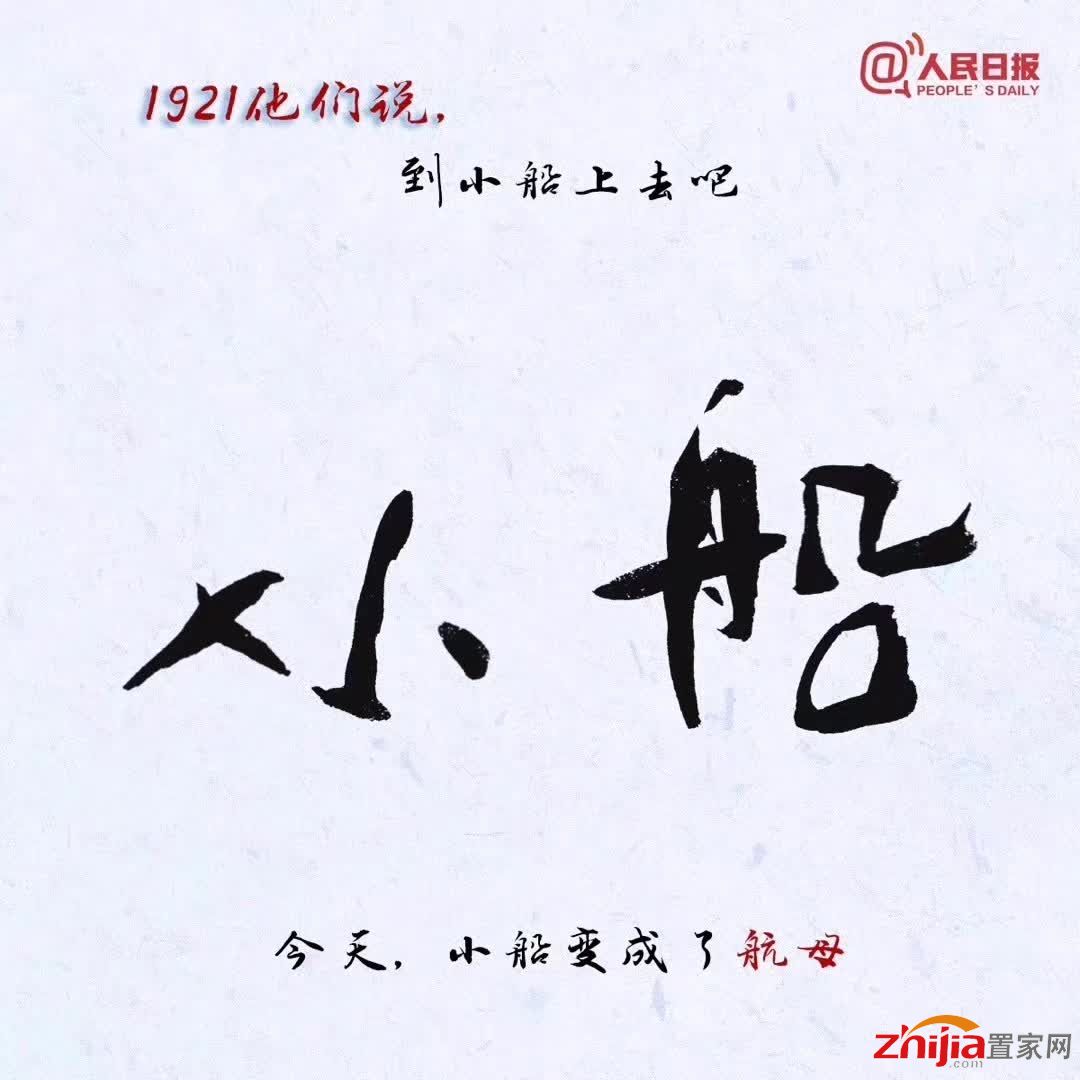 @人民日报
PEOPLE'S DAILY
1921他们说，
到小船上去吧
小船
今天，小船变成了航母
zhijia置家网
.com